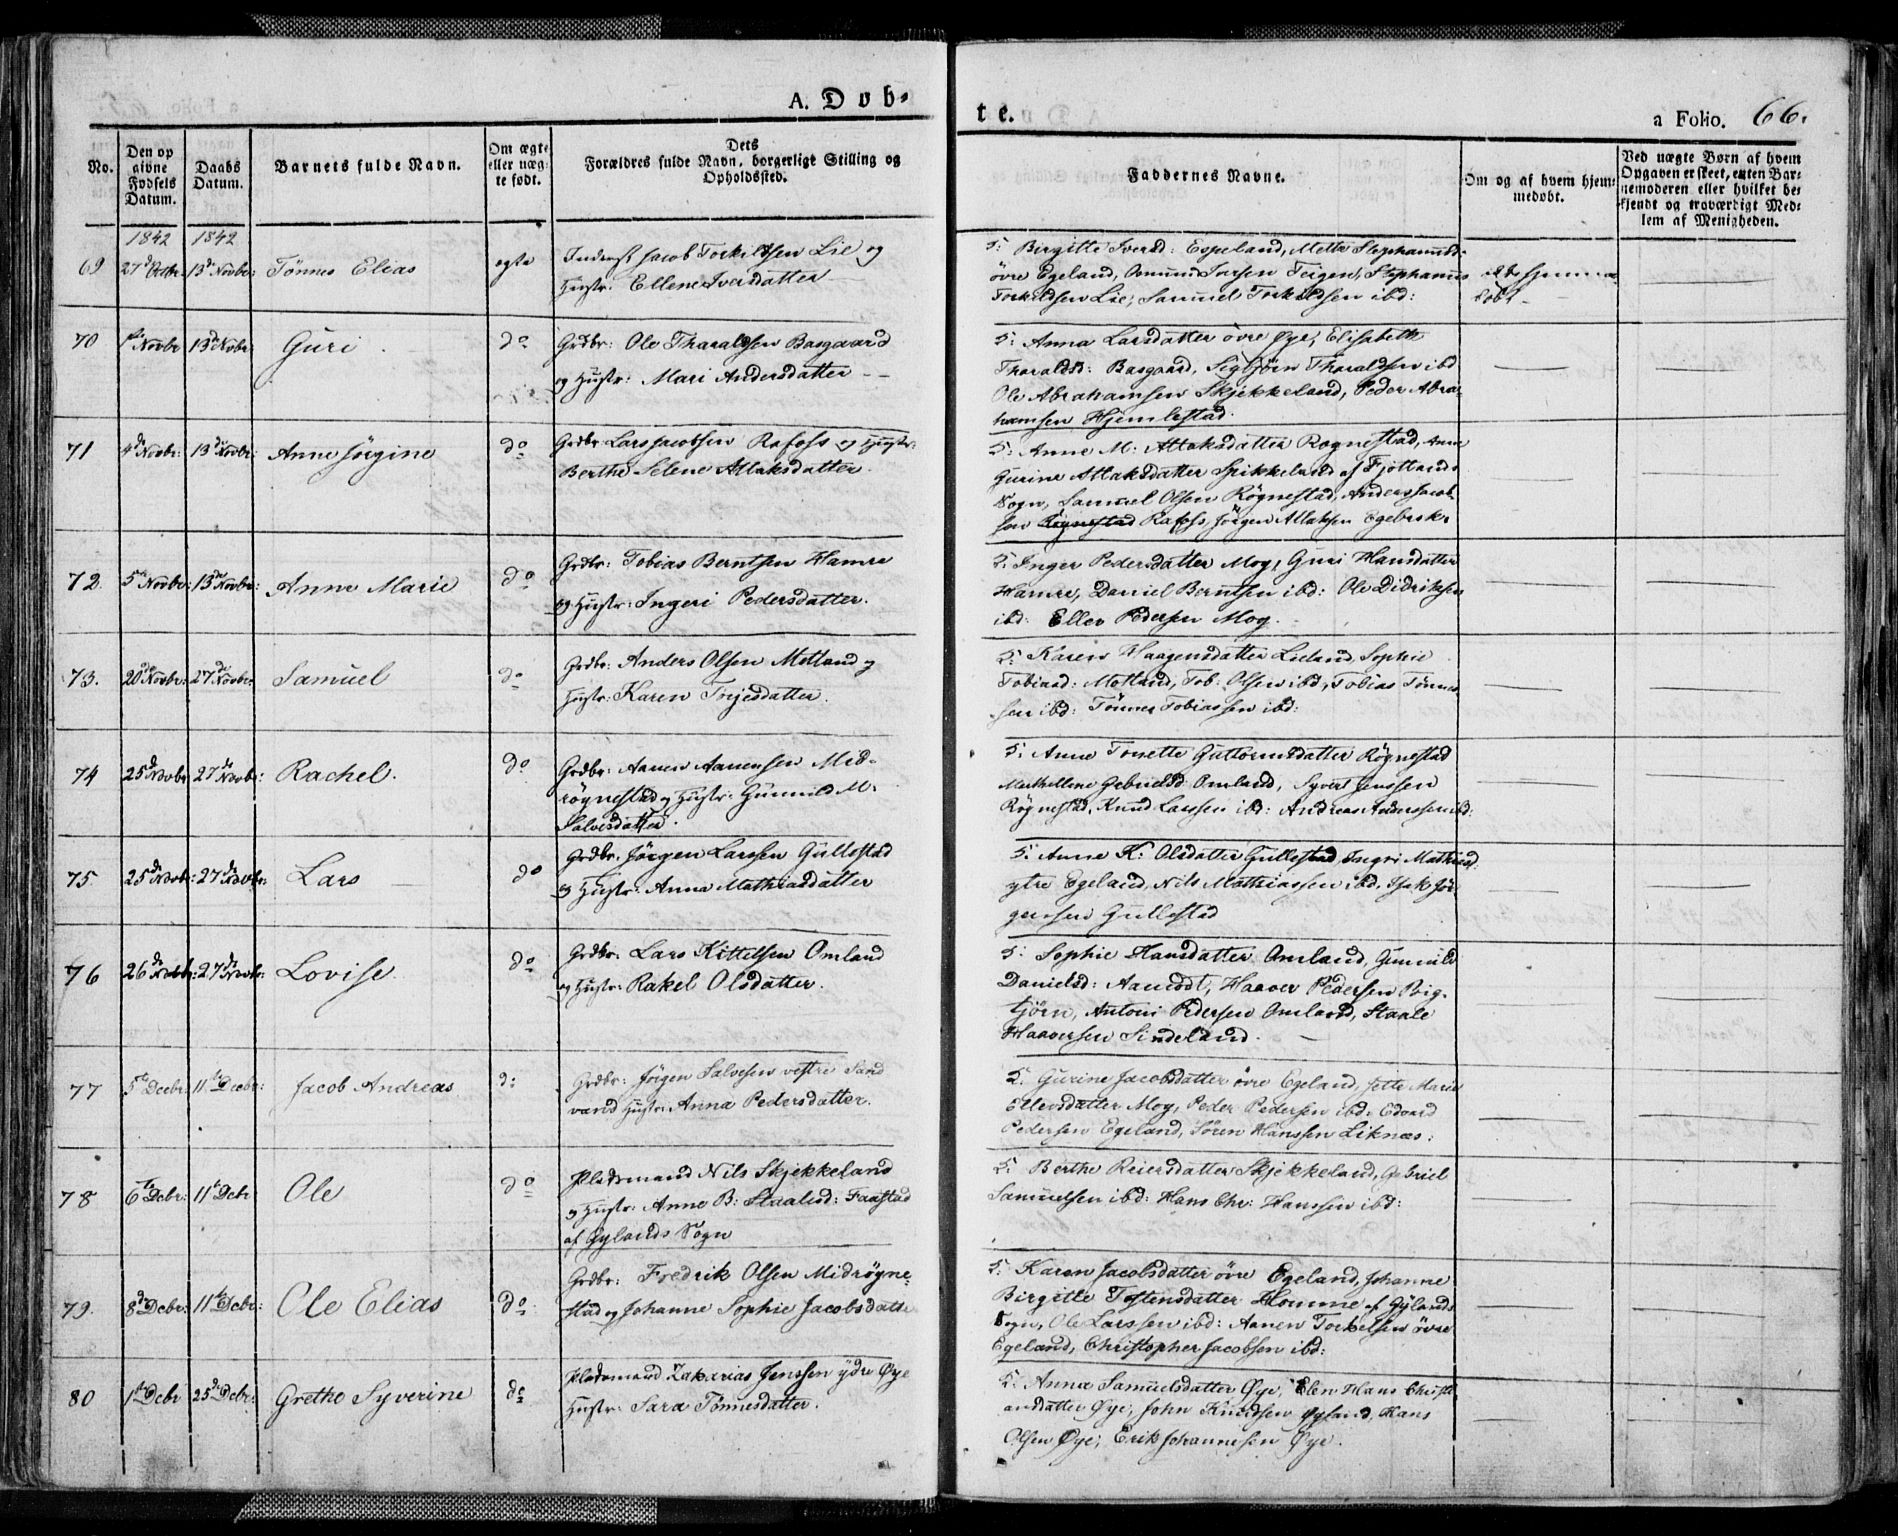 A. Døb-
te.
a Folio. 66.
No.
Den opgivne Fødsels Datum.
Daabs Datum.
Barnets fulde Navn.
Om ægte eller uægte født.
Dets Forældres fulde Navn, borgerligt Stilling og Opholdssted.
Faddernes Navne.
Om og af hvem hjemmedøbt.
Ved uægte Børn af hvem Opgaven er skeet, enten Barnemoderen eller hvilket bekjendt og troværdigt Medlem af Menigheden.
1842 1842
69 27de Octbr: 13de Novbr: Tønnes Elias ægte
Inderst Jacob Torkildsen Lie og
Hustr: Ellene Iversdatter
5: Birgitte Iversd: Espeland, Mette Stephanusd:
øvre Egeland, Omund Iversen Teigen, Stephanus
Torkildsen Lie, Samuel Torkildsen ibd:
døbt
70 1ste Novbr 13de Novbr: Guri do
Grdbr: Ole Tharaldsen Basgaard
og Hustr: Mari Andersdatter
5: Anna Larsdatter øvre Øye, Elisabeth
Tharaldsd: Basgaard, Sigbjørn Tharaldsen ibd
Ole Abrahamsen Skjekkeland, Peder Abra-
hamsen Hjemlestad.
71 4de Novbr: 13de Novbr: Anne Jørgine do
Grdbr Lars Jacobsen Rafoss og Hustr:
Berthe Selene Atlaksdatter.
5: Anne M: Atlaksdatter Røgnestad, Anne
Gurine Atlaksdatter Spikkeland af Fjotlands
Sogn, Samuel Olsen Røgnestad, Anders Jacob-
sen Røgnestad Rafoss, Jørgen Atlaksen Egebæk.
72. 5te Novbr: 13de Novbr: Anne Marie do
Grdbr: Tobias Berntsen Hamre
og Hustr: Ingeri Pedersdatter.
5: Inger Pedersdatter Moy, Guri Hansdatter
Hamre, Daniel Berntsen ibd: Ole Didriksen
ibd: Ellev Pedersen Moy.
73. 20de Novbr: 27de Novbr: Samuel do
Grdbr: Anders Olsen Motland og
Hustr: Karen Terjesdatter.
5: Karen Haagensdatter Lieland, Sophie
Tobiasd: Motland, Tob: Olsen ibd, Tobias Tønnes-
sen ibd: Tønnes Tobiassen ibd:
74 25de Novbr 27de Novbr: Rachel. do
Grdbr: Aanen Aanensen Mid-
røgnestad og Hustr: Gunnild M:
Salvesdatter.
5: Anne Tonette Guttormsdatter Røgnestad
Gabrielsd: Omland, Syvert Jenssen
Røgnestad, Knud Larssen ibd: Andreas Anderssen ibd:
75 25de Novbr: 27de Novbr: Lars do
Grdbr. Jørgen Larssen Gullestad
og Hustr: Anna Mathiasdatter
5: Anne K: Olsdatter Gullestad, Ingri Mathiasd:
ytre Egeland, Nils Mathiassen ibd, Isak Jør-
gensen Gullestad
76 26de Novbr: 27de Novbr: Lovise do
Grdbr: Lars Kittelsen Omland
og Hustr: Rakel Olsdatter.
5: Sophie Hansdatter Omland, Gunnild
Danielsd: Aamodt, Haaver Pedersen Big-
tjørn, Antoni Pedersen Omland, Staale
Haaversen Sindeland.
77 5te Decbr: 11te Decbr: Jacob Andreas do
Grdbr: Jørgen Salvesen vestre Sand
vand Hustr: Anna Pedersdatter.
5. Gurine Jacobsdatter øvre Egeland, Jette Marie
Ellevsdatter Moy, Peder Pedersen ibd. Edvard
Pedersen Egeland, Søren Hanssen Liknæs:
78 6te Decbr: 11te Decbr Ole do
Pladsmand Nils Skjekkeland
og Hustr: Anne B: Staalesd: Faastad
af Gylands Sogn
5. Berthe Reiersdatter Skjekkeland, Gabriel
Samuelsen ibd: Hans Chr: Hanssen ibd:
79. 8de Decbr: 11te Decbr: Ole Elias do
Grdbr: Fredrik Olsen Midrøgne-
stad og Johanne Sophie Jacobsdatter
5. Karen Jacobsdatter øvre Egeland, Johanne
Birgitte Tostensdatter Homme af Gylands
Sogn, Ole Larssen ibd: Aanen Torkelsen øvre
Egeland, Christopher Jacobsen ibd:
80 1ste Decbr 25de Decbr: Grethe Syverine do
Pladsmand Zakarias Jenssen ydre Øye
Hustr: Sara Tønnesdatter.
5. Anna Samuelsdatter Øye, Elen Hans Christi
ansdatter Øye, John Knudsen Øyland, Hans
Olsen Øye, Erik Johannesen Øye.